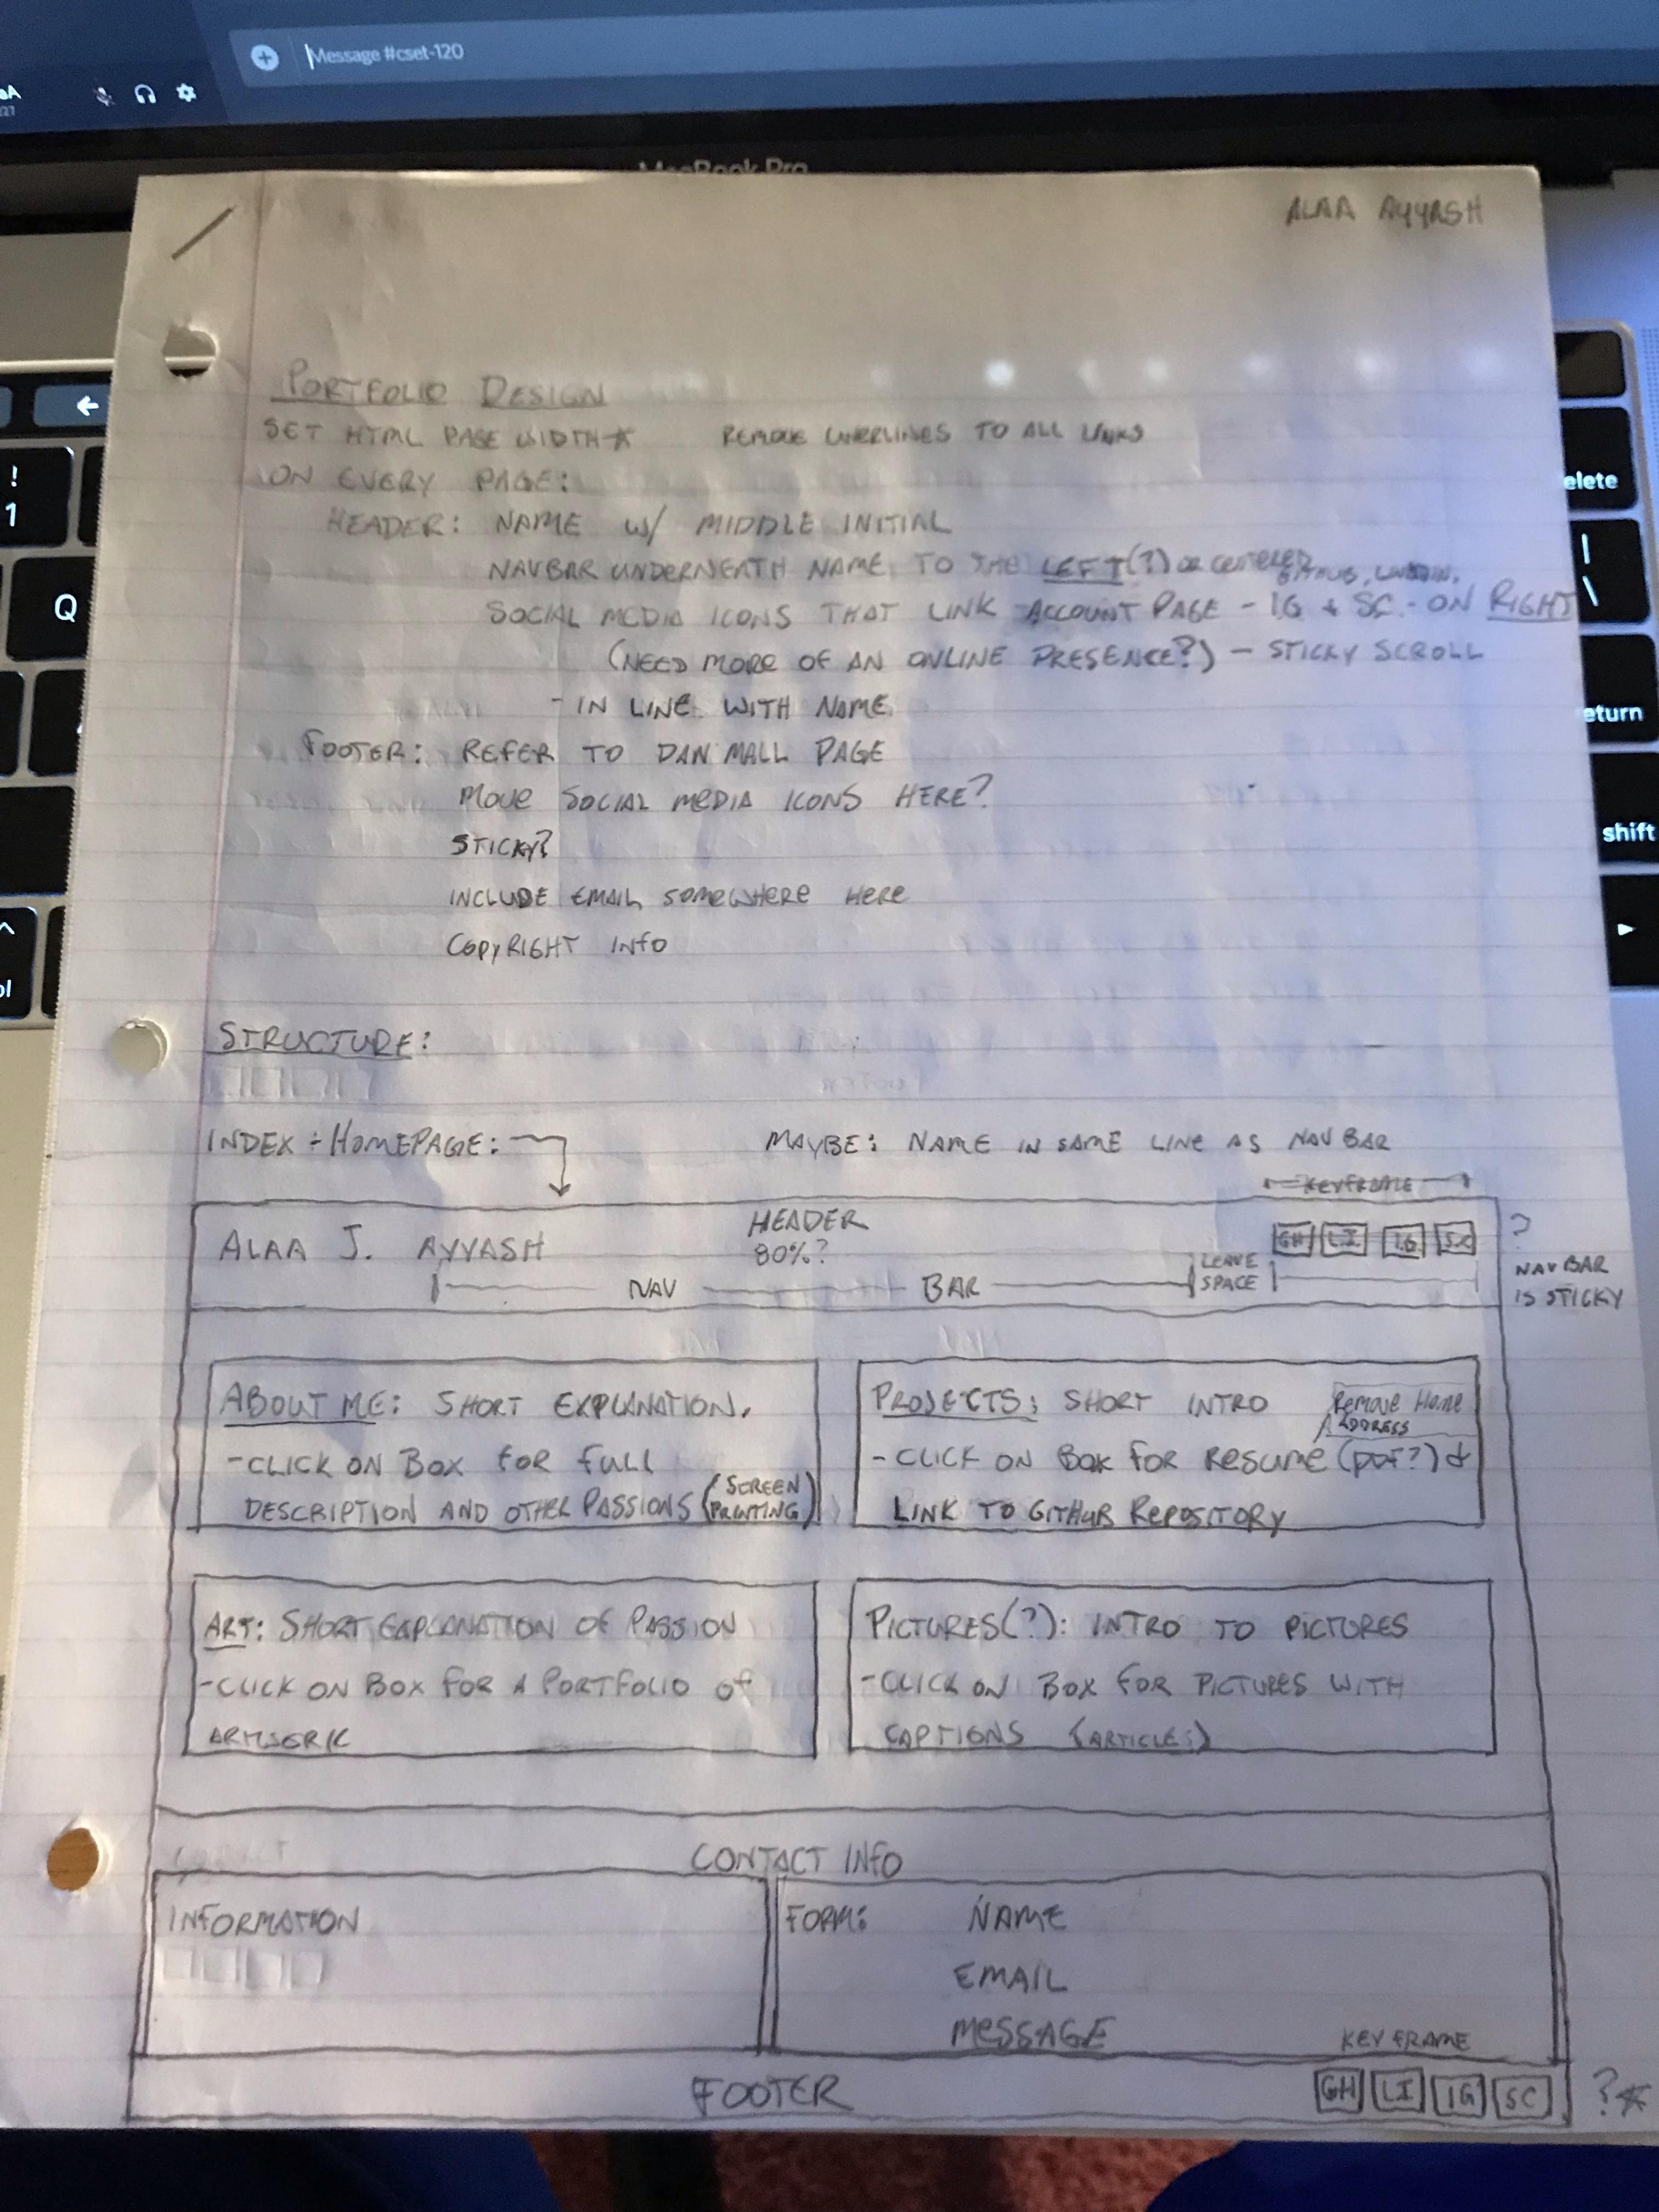 Message #cset-120
MacBook Pro
ALAA AYYASH
PORTFOLIO DESIGN
SET HTML PAGE WIDTH* REMOVE UNERLINES TO ALL LINKS
ON EVERY PAGE:
HEADER: NAME W/ MIDDLE INITIAL
NAVBAR UNDERNEATH NAME TO THE LEFT(?) OR CENTERED
GITHUB,
SOCIAL MEDIA ICONS THAT LINK ACCOUNT PAGE - IG + SC - ON RIGHT
(NEED MORE OF AN ONLINE PRESENCE?) - STICKY SCROLL
- IN LINE WITH NAME
FOOTER: REFER TO DAN MALL PAGE
MOVE SOCIAL MEDIA ICONS HERE?
STICKY?
INCLUDE EMAIL SOMEWHERE HERE
COPYRIGHT INFO
STRUCTURE:
INDEX - HOMEPAGE:
MAYBE: NAME IN SAME LINE AS NAV BAR
KEYFRAME
ALAA J. AYYASH
HEADER
80%?
GH LI IG SC
?
NAV BAR
LEAVE
SPACE
NAV BAR
IS STICKY
ABOUT ME: SHORT EXPLANATION.
-CLICK ON BOX FOR FULL
DESCRIPTION AND OTHER PASSIONS (SCREEN
PRINTING)
PROJECTS: SHORT INTRO
Remove Home
ADDRESS
- CLICK ON BOX FOR RESUME (PDF?) &
LINK TO GITHUB REPOSITORY
ART: SHORT EXPLANATION OF PASSION
-CLICK ON BOX FOR A PORTFOLIO OF
ARTWORK
PICTURES(?): INTRO TO PICTURES
-CLICK ON BOX FOR PICTURES WITH
CAPTIONS (ARTICLES)
CONTACT INFO
INFORMATION
FORM: NAME
EMAIL
MESSAGE
KEYFRAME
FOOTER
GH LI IG SC
?*
!
1
Q
elete
|
\
eturn
shift